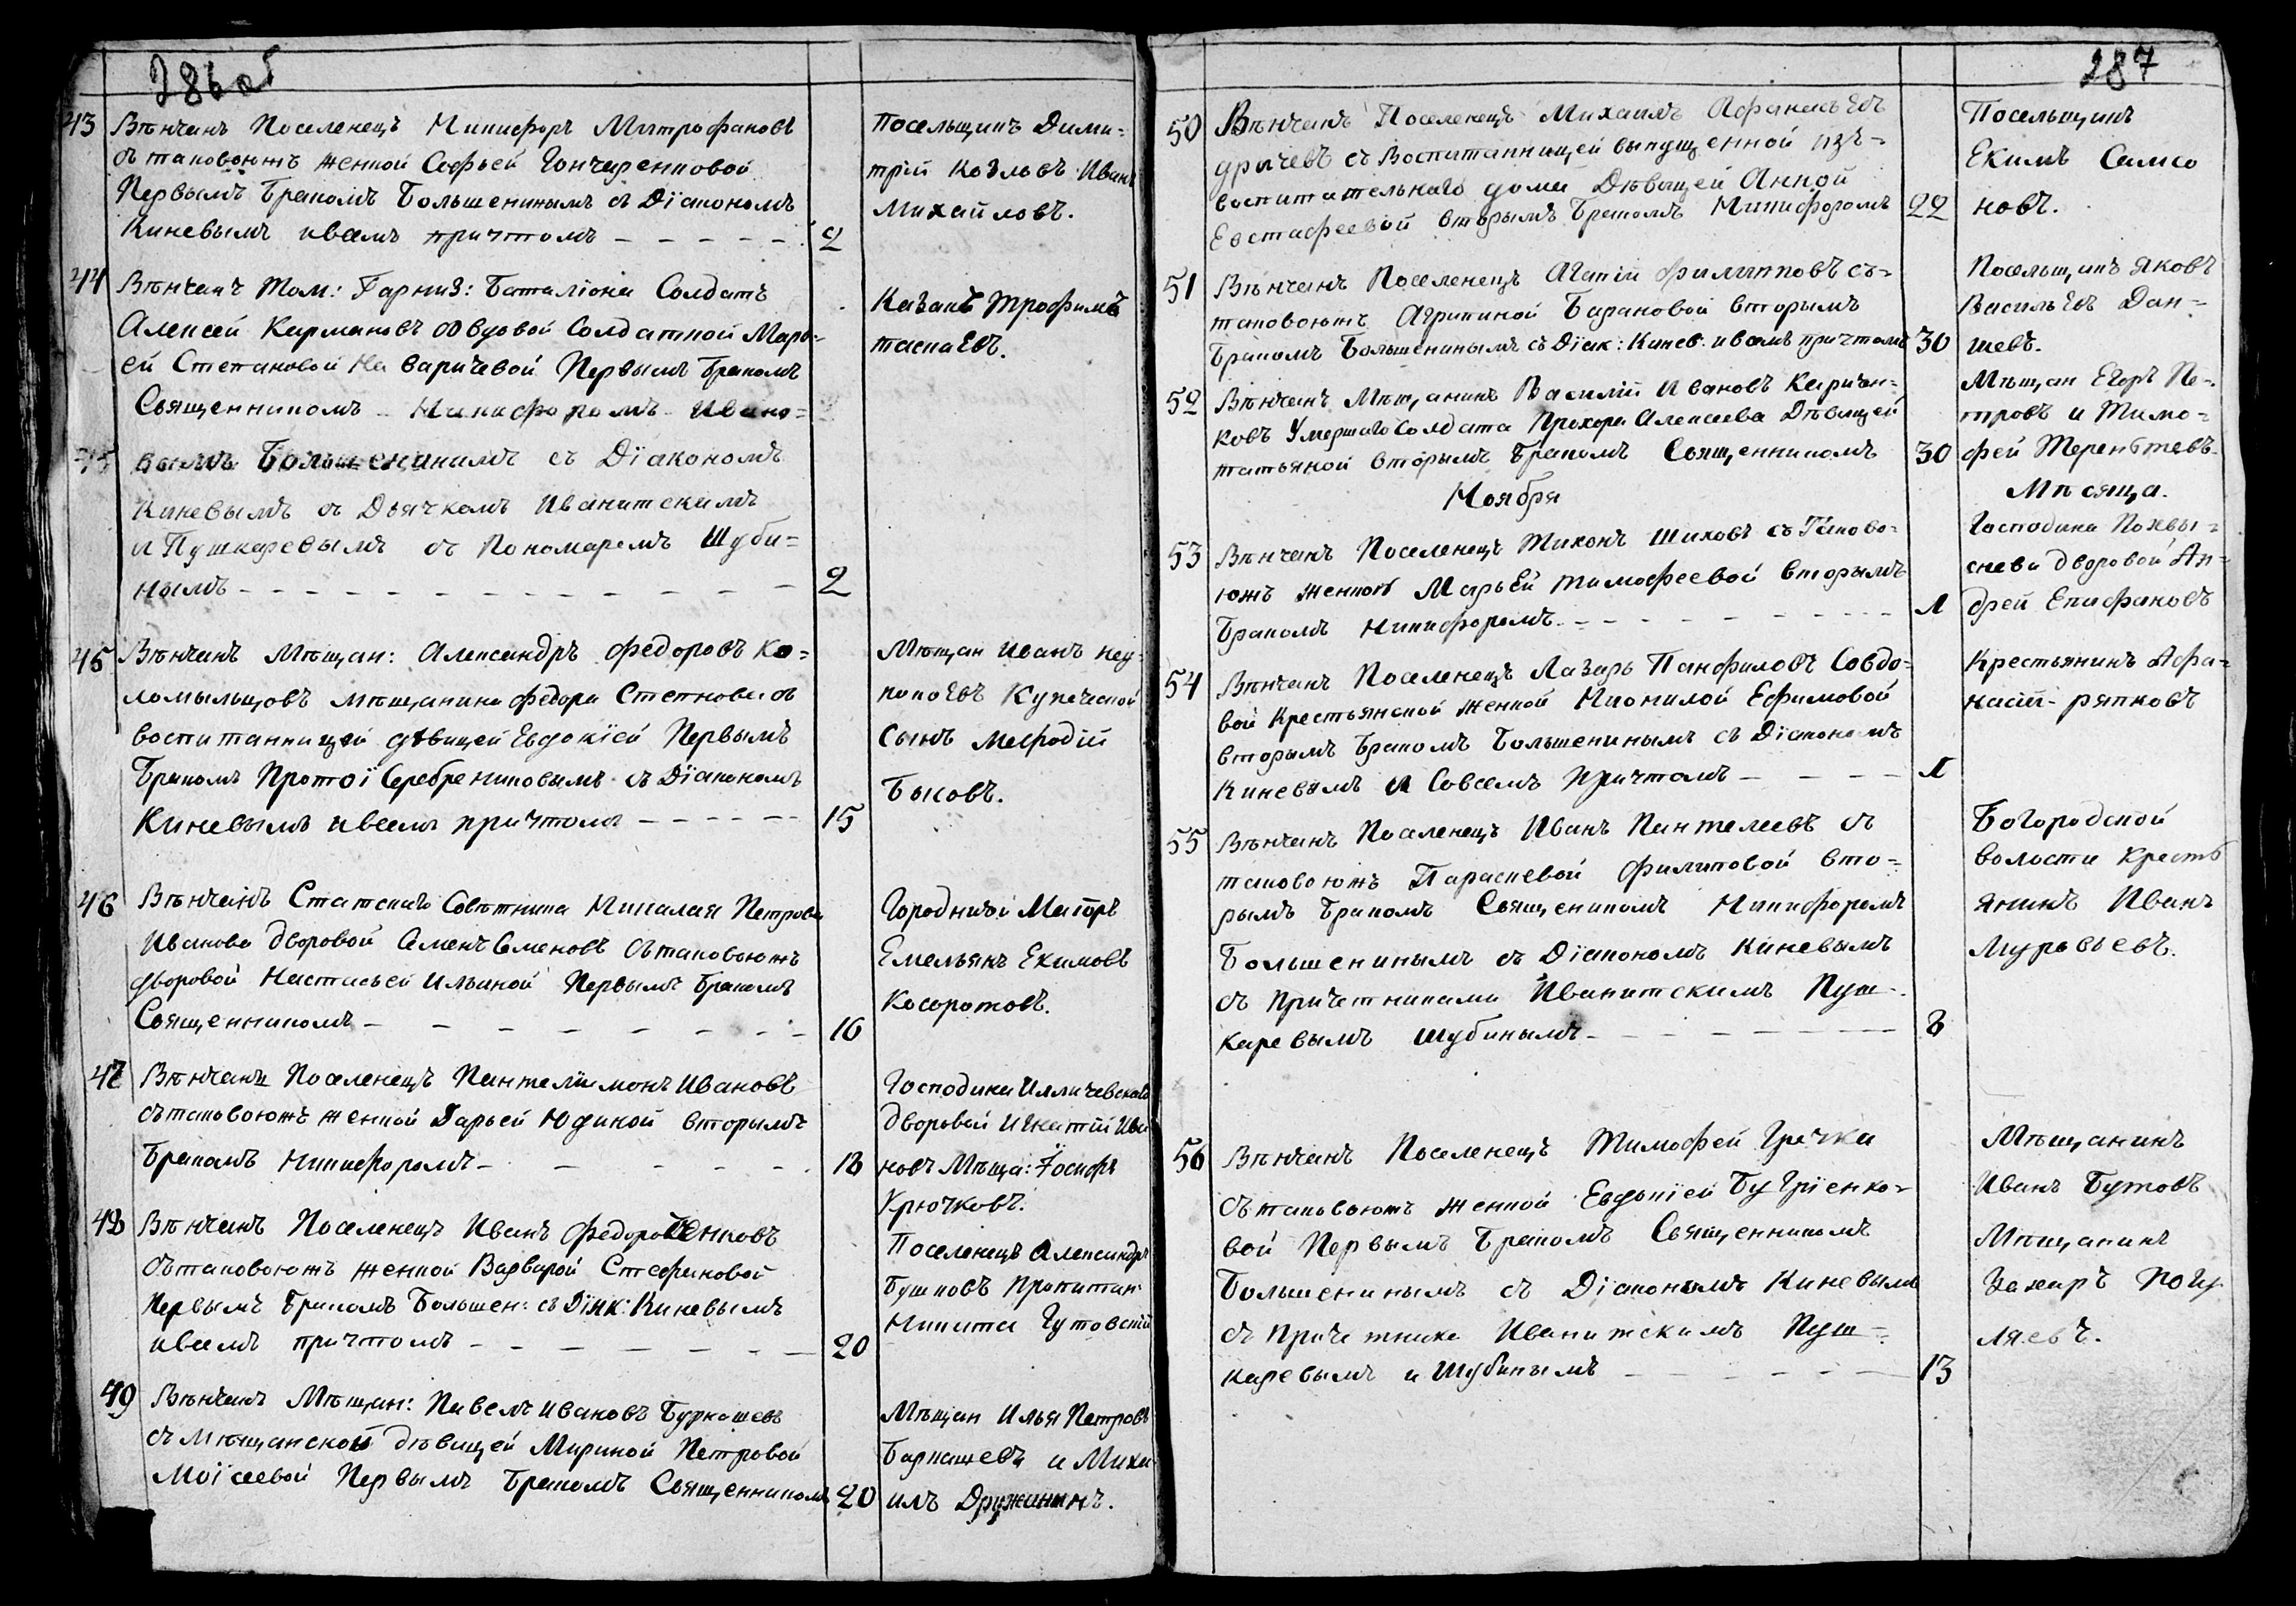 286 об
43 Вѣнчанъ Поселенецъ Никифоръ Митрофановъ
съ таковоюжъ женкой Софьей Гончаренковой
Первымъ бракомъ Большенинымъ съ Дїакономъ
Киневымъ ивсемъ причтомъ 2
Посельщикъ Дими=
трїй Козловъ Иванъ
Михайловъ.
44 Вѣнчанъ Том: Гарниз: Баталїона Солдатъ
Алексей Кармановъ со вдовой Солдаткой Марь=
ей Степановой Первымъ бракомъ
Священникомъ Никифоромъ Ивано=
вымъ Большенинымъ съ Дїакономъ
Киневымъ съ Дьячкомъ Иванитскимъ
и Пушкаревымъ съ Пономаремъ Шуби=
нымъ 2
Казакъ Трофимъ
таскаевъ.
45 Вѣнчанъ Мѣщан: Александръ Федоровъ Ко=
ломыльцовъ мѣщанина Федора Степнова съ
воспитанницей дѣвицей Евдокїей Первымъ
бракомъ Протої Серебрениковымъ съ Дїакономъ
Киневымъ ивсемъ причтомъ 15
Мѣщан Иванъ
Купеческой
Сынъ Мефодїй
Быковъ.
46 Вѣнчанъ Статскаго Совѣтника Николая Петрова
Иванова дворовой Семенъ Семеновъ съ таковоюжъ
дворовой Настасьей Ильиной Первымъ бракомъ
Священникомъ 16
Городничей Маїоръ
Емельянъ Екимовъ
Косоротовъ.
47 Вѣнчанъ Поселенецъ Пантелїимонъ Ивановъ
съ таковоюжъ женкой Дарьей Юдиной вторымъ
бракомъ Никифоромъ 18
Господина Илличевскаго
дворовой Игнатїй Ива
новъ Мѣща: Їосифъ
Крючковъ.
48 Вѣнчанъ Поселенецъ Иванъ Федоровенковъ
съ таковоюжъ женкой Варварой Стефановой
Первымъ бракомъ Большен: съ Дїак: Киневымъ
ивсемъ причтомъ 20
Поселенецъ Александръ
Бушковъ пропитан
Никита Гутовскїй
49 Вѣнчанъ Мѣщан: Павелъ Ивановъ Бурнашевъ
съ мѣщанской дѣвицей Мариной Петровой
Моїсеевой Первымъ бракомъ Священникомъ 20
Мѣщан Илья Петровъ
Барнашевъ и Миха
илъ Дружининъ.
287
50 Вѣнчанъ Поселенецъ Михаилъ Афанасьевъ
съ Воспитанницей выпущенной изъ=
воспитательнаго дома Дѣвицей Анной
Евстафеевой вторымъ бракомъ Никифоромъ 22
Посельщикъ
Екимъ Самсо
новъ.
51 Вѣнчанъ Поселенецъ Агапїй Филипповъ съ=
таковоюжъ Агрипиной Барановой вторымъ
бракомъ Большенинымъ съ Дїак: Кинев: ивсемъ причтомъ 30
Посельщикъ Яковъ
Васильевъ Дан=
шевъ.
52 Вѣнчанъ Мѣщанинъ Василїй Ивановъ Киричен=
ковъ Умершаго Солдата Прохора Алексеева Дѣвицей
татьяной вторымъ бракомъ Священникомъ 30
Мѣщан Егоръ Пе=
тровъ и Тимо=
фей Терентьевъ
Ноября Мѣсяца.
53 Вѣнчанъ Поселенецъ Тихонъ Шиховъ съ Таково=
южъ женкой Марьей тимофеевой вторымъ
бракомъ Никифоромъ 1
Господина Похвы=
снева дворовой Ан=
дрей Епифановъ
54 Вѣнчанъ Поселенецъ Лазарь Панфиловъ Совдо=
вой Крестьянской женкой Неонилой Ефимовой
вторымъ бракомъ Большенинымъ съ Дїакономъ
Киневымъ и Совсемъ причтомъ 1
Крестьянинъ Афа=
насїй ряпковъ
55 Вѣнчанъ Поселенецъ Иванъ Пантелеевъ съ
таковоюжъ Параскевой Филиповой вто=
рымъ бракомъ Священикомъ Никифоромъ
Большенинымъ съ Дїакономъ Киневымъ
съ причетниками Иванитскимъ Пуш=
каревымъ Шубинымъ 8
Богородской
волости Кресть
янинъ Иванъ
Муравьевъ.
56 Вѣнчанъ Поселенецъ Тимофей Гречка
съ таковоюжъ женкой Евдокїей Бугрїенко=
вой Первымъ бракомъ Священникомъ
Большенинымъ съ Дїакономъ Киневымъ
съ причетника Иванитскимъ Пуш=
каревымъ и Шубинымъ 13
Мѣщанинъ
Иванъ Бутовъ
Мѣщанинъ
Захаръ Погу
ляевъ.